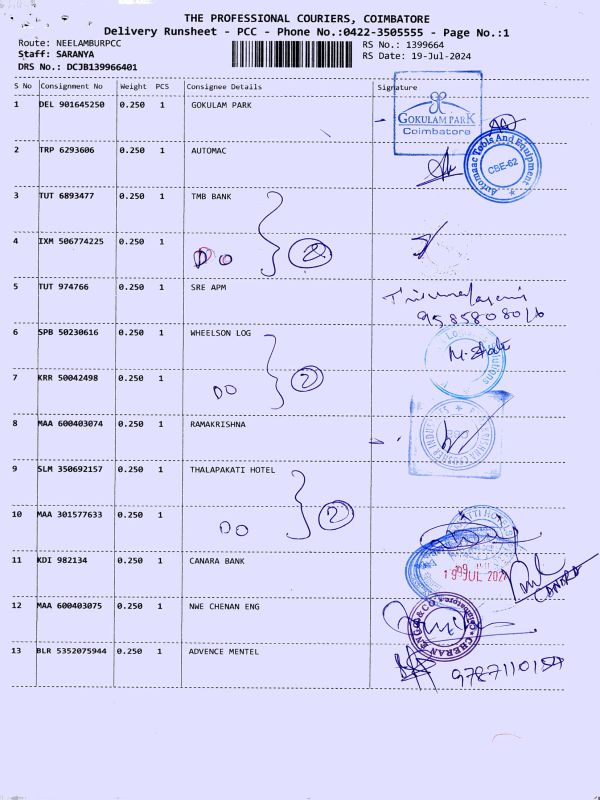 THE PROFESSIONAL COURIERS, COIMBATORE
Delivery Runsheet - PCC - Phone No.:0422-3505555 - Page No.:1
Route: NEELAMBURPCC RS No.: 1399664
Staff: SARANYA RS Date: 19-Jul-2024
DRS No.: DCJB139966401
S No Consignment No Weight PCS Consignee Details Signature
1 DEL 901645250 0.250 1 GOKULAM PARK
GOKULAM PARK
Coimbatore
2 TRP 6293606 0.250 1 AUTOMAC
Automaac Tools And Equipment
CBE-62
3 TUT 6893477 0.250 1 TMB BANK
4 IXM 506774225 0.250 1
DO 2
5 TUT 974766 0.250 1 SRE APM
9585808016
6 SPB 50230616 0.250 1 WHEELSON LOG
7 KRR 50042498 0.250 1
DO 2
8 MAA 600403074 0.250 1 RAMAKRISHNA
9 SLM 350692157 0.250 1 THALAPAKATI HOTEL
10 MAA 301577633 0.250 1
DO 2
11 KDI 982134 0.250 1 CANARA BANK
19 JUL 202
CANARA
12 MAA 600403075 0.250 1 NWE CHENAN ENG
CHERAN ENGG & CO
13 BLR 5352075944 0.250 1 ADVENCE MENTEL